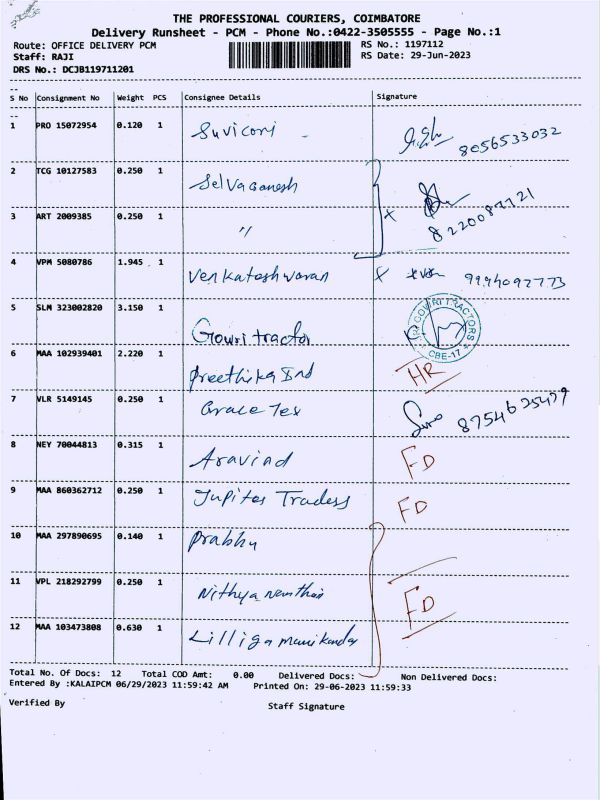 THE PROFESSIONAL COURIERS, COIMBATORE
Delivery Runsheet - PCM - Phone No.:0422-3505555 - Page No.:1
Route: OFFICE DELIVERY PCM RS No.: 1197112
Staff: RAJI RS Date: 29-Jun-2023
DRS No.: DCJB119711201
S No Consignment No Weight PCS Consignee Details Signature
1 PRO 15072954 0.120 1 Suvicori 8056533032
2 TCG 10127583 0.250 1 Selvaganesh
3 ART 2009385 0.250 1 " x
4 VPM 5080786 1.945 1 Venkateshwaran x
5 SLM 323002820 3.150 1 Gowri tractor GOWRI TRACTORS CBE-17
6 MAA 102939401 2.220 1 Preethika Ind HR
7 VLR 5149145 0.250 1 Grace Tex
8 NEY 70044813 0.315 1 Aravind FD
9 MAA 860362712 0.250 1 Jupiter Traders FD
10 MAA 297890695 0.140 1 Prabhu
11 VPL 218292799 0.250 1 FD
12 MAA 103473808 0.630 1
Total No. Of Docs: 12 Total COD Amt: 0.00 Delivered Docs: Non Delivered Docs:
Entered By :KALAIPCM 06/29/2023 11:59:42 AM Printed On: 29-06-2023 11:59:33
Verified By Staff Signature